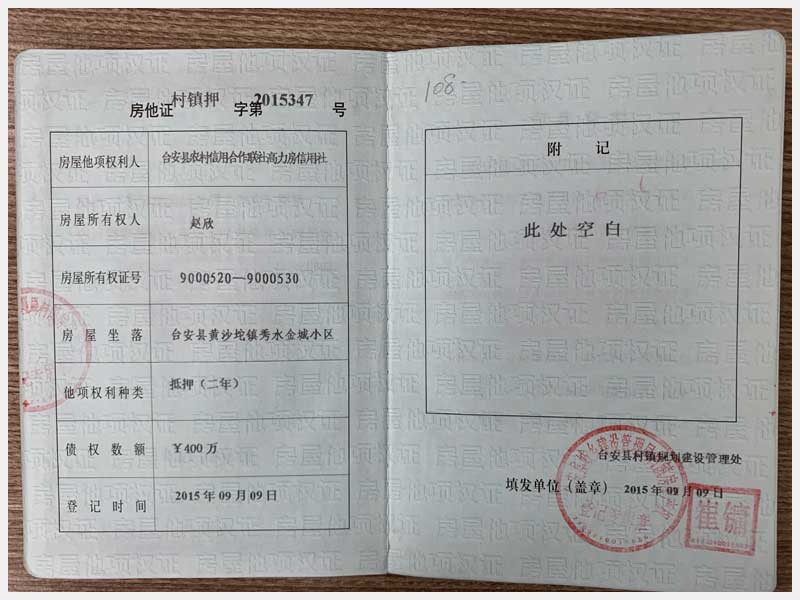 村镇押 2015347
房他证 字第 号
房屋他项权利人 台安县农村信用合作联社高力房信用社
房屋所有权人 赵欣
房屋所有权证号 9000520—9000530
房屋坐落 台安县黄沙坨镇秀水金城小区
他项权利种类 抵押（二年）
债权数额 ￥400万
登记时间 2015年09月09日
108
附记
此处空白
台安县村镇规划建设管理处
填发单位（盖章） 2015年09月09日
崔镛